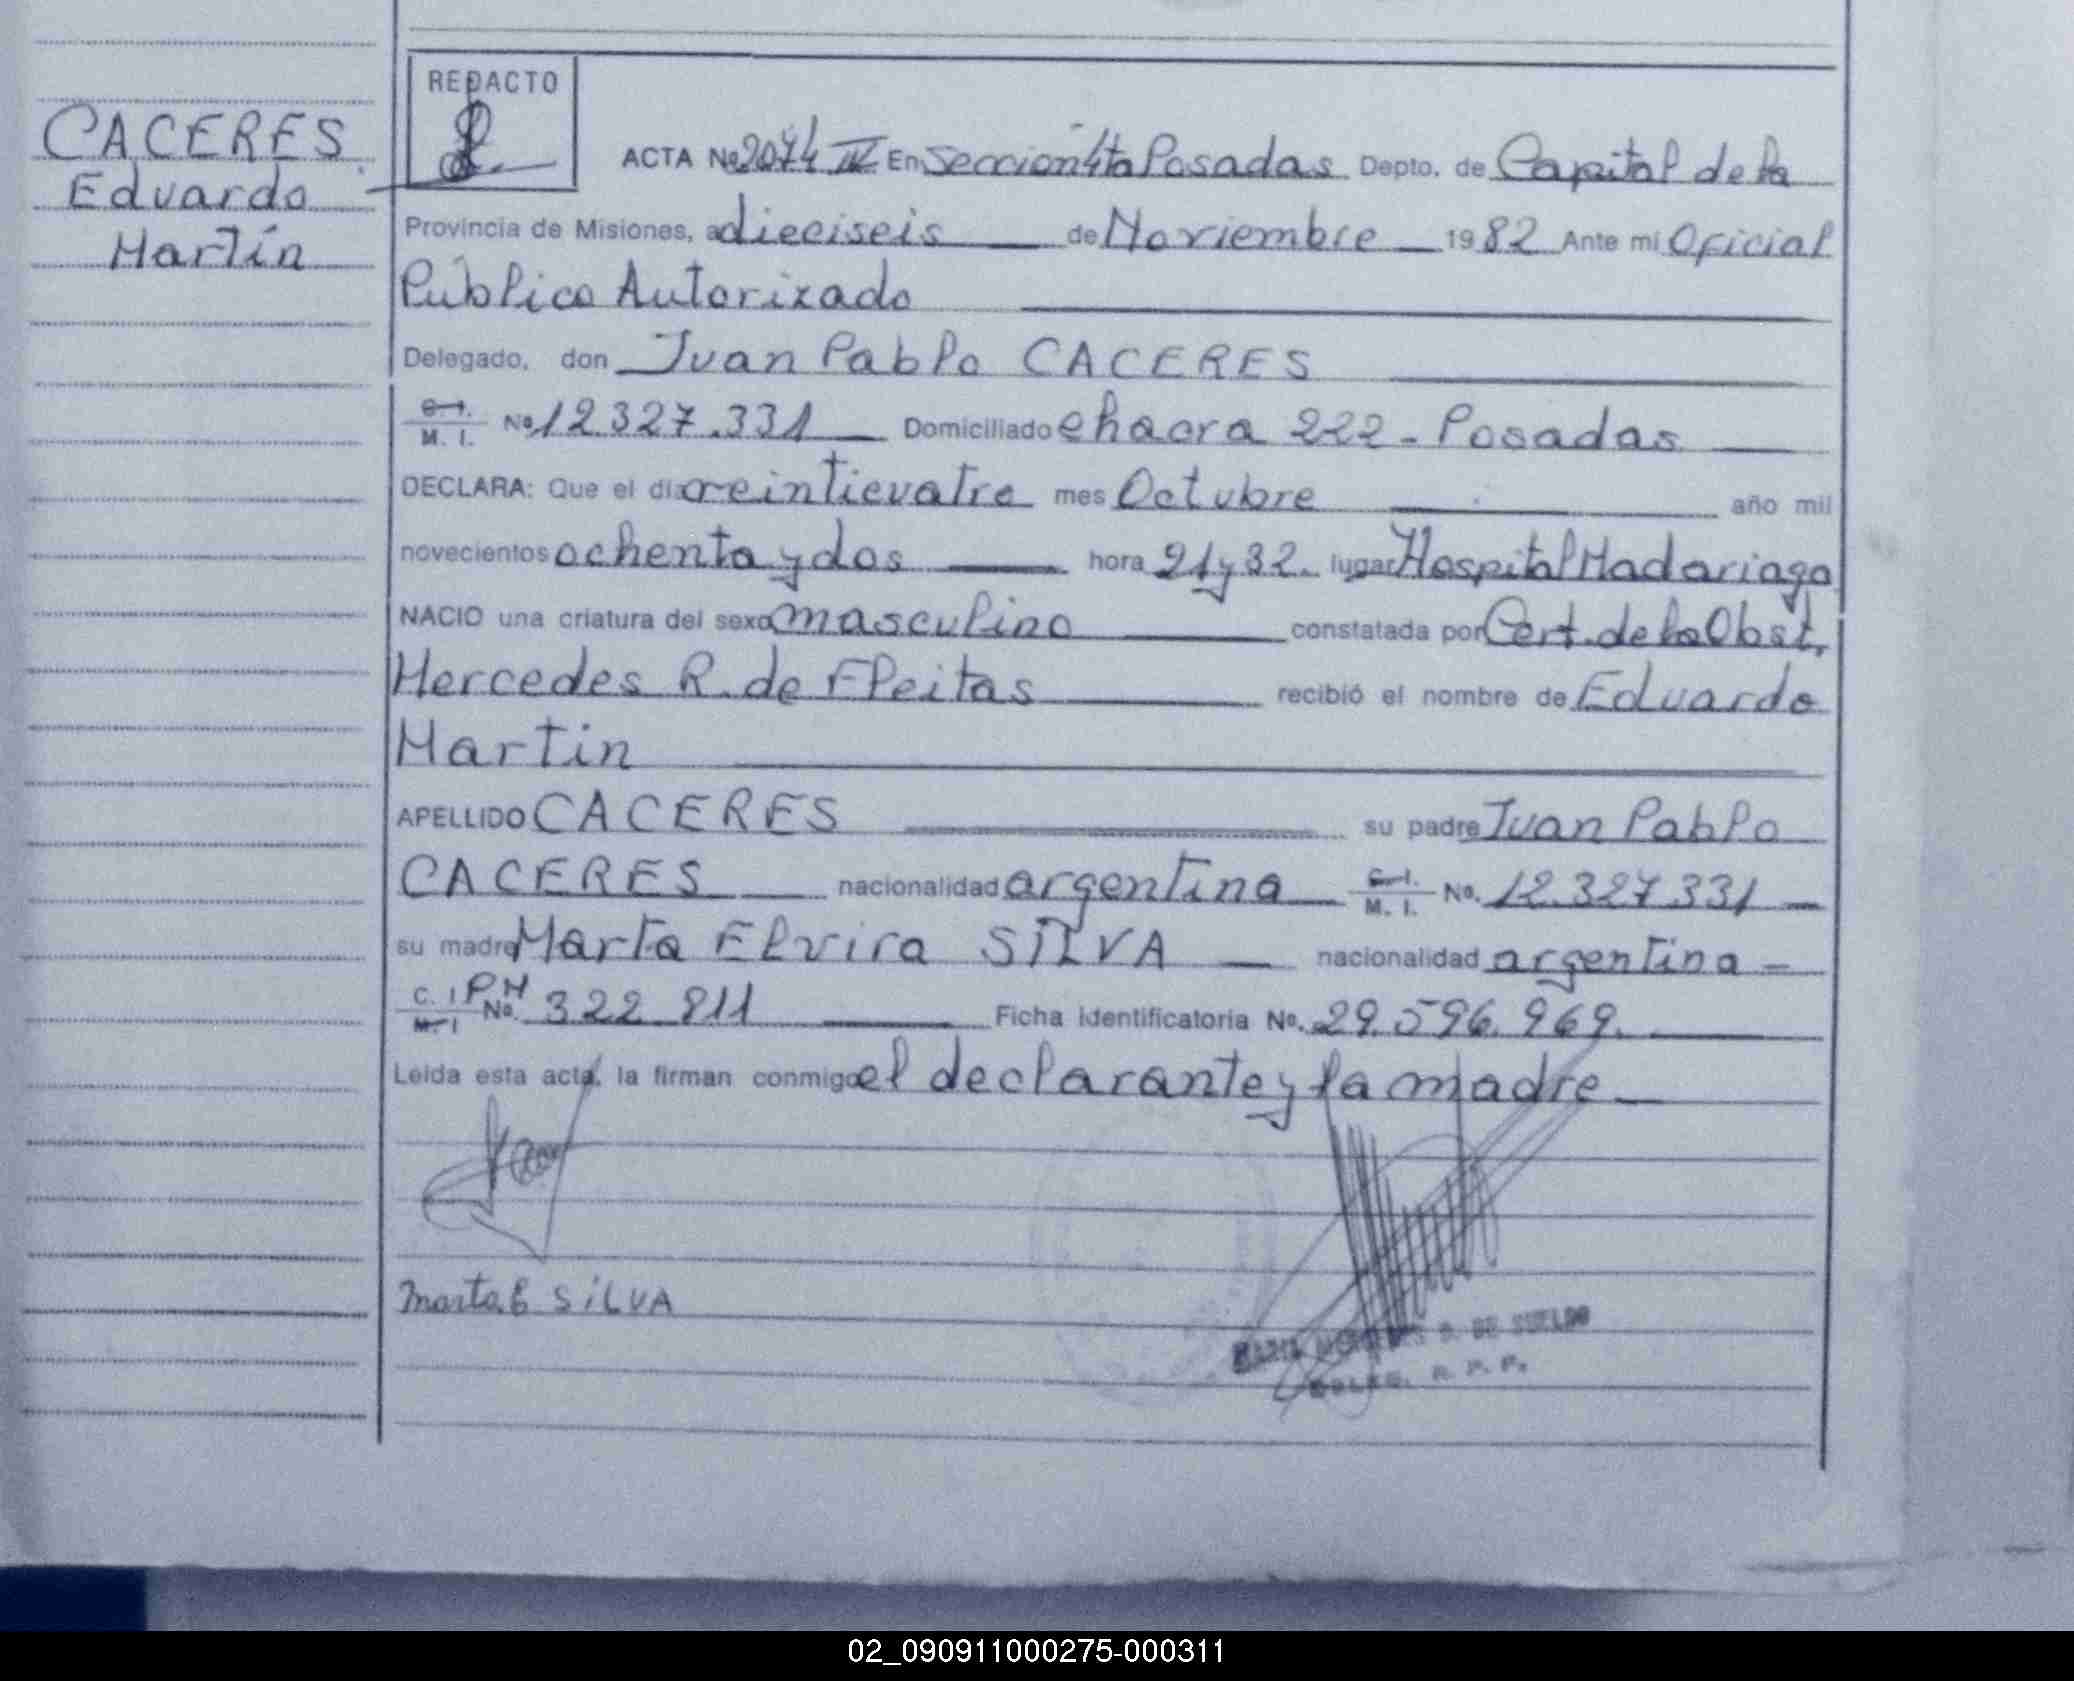 CACERES
Eduardo
Martín
REDACTO
ACTA No 2074 IV En Seccion 4ta Posadas Depto. de Capital de la
Provincia de Misiones, a dieciseis de Noviembre 1982 Ante mi Oficial
Público Autorizado
Delegado, don Juan Pablo CACERES
C. I. M. I. No 12.327.331 Domiciliado chacra 222 - Posadas
DECLARA: Que el día veinticuatro mes Octubre año mil
novecientos ochenta y dos hora 21 y 32. lugar Hospital Madariaga
NACIO una criatura del sexo masculino constatada por Cert. de la Obst.
Mercedes R. de Fleitas recibió el nombre de Eduardo
Martin
APELLIDO CACERES su padre Juan Pablo
CACERES nacionalidad argentina C. I. M. I. No. 12.327.331
su madre Marta Elvira SILVA nacionalidad argentina
C. I. M. I PM No. 322 811 Ficha Identificatoria No. 29.596.969.
Leída esta acta, la firman conmigo el declarante y la madre
Marta E SILVA
DE SUELDO
DELEG. R. P. P.
02_090911000275-000311